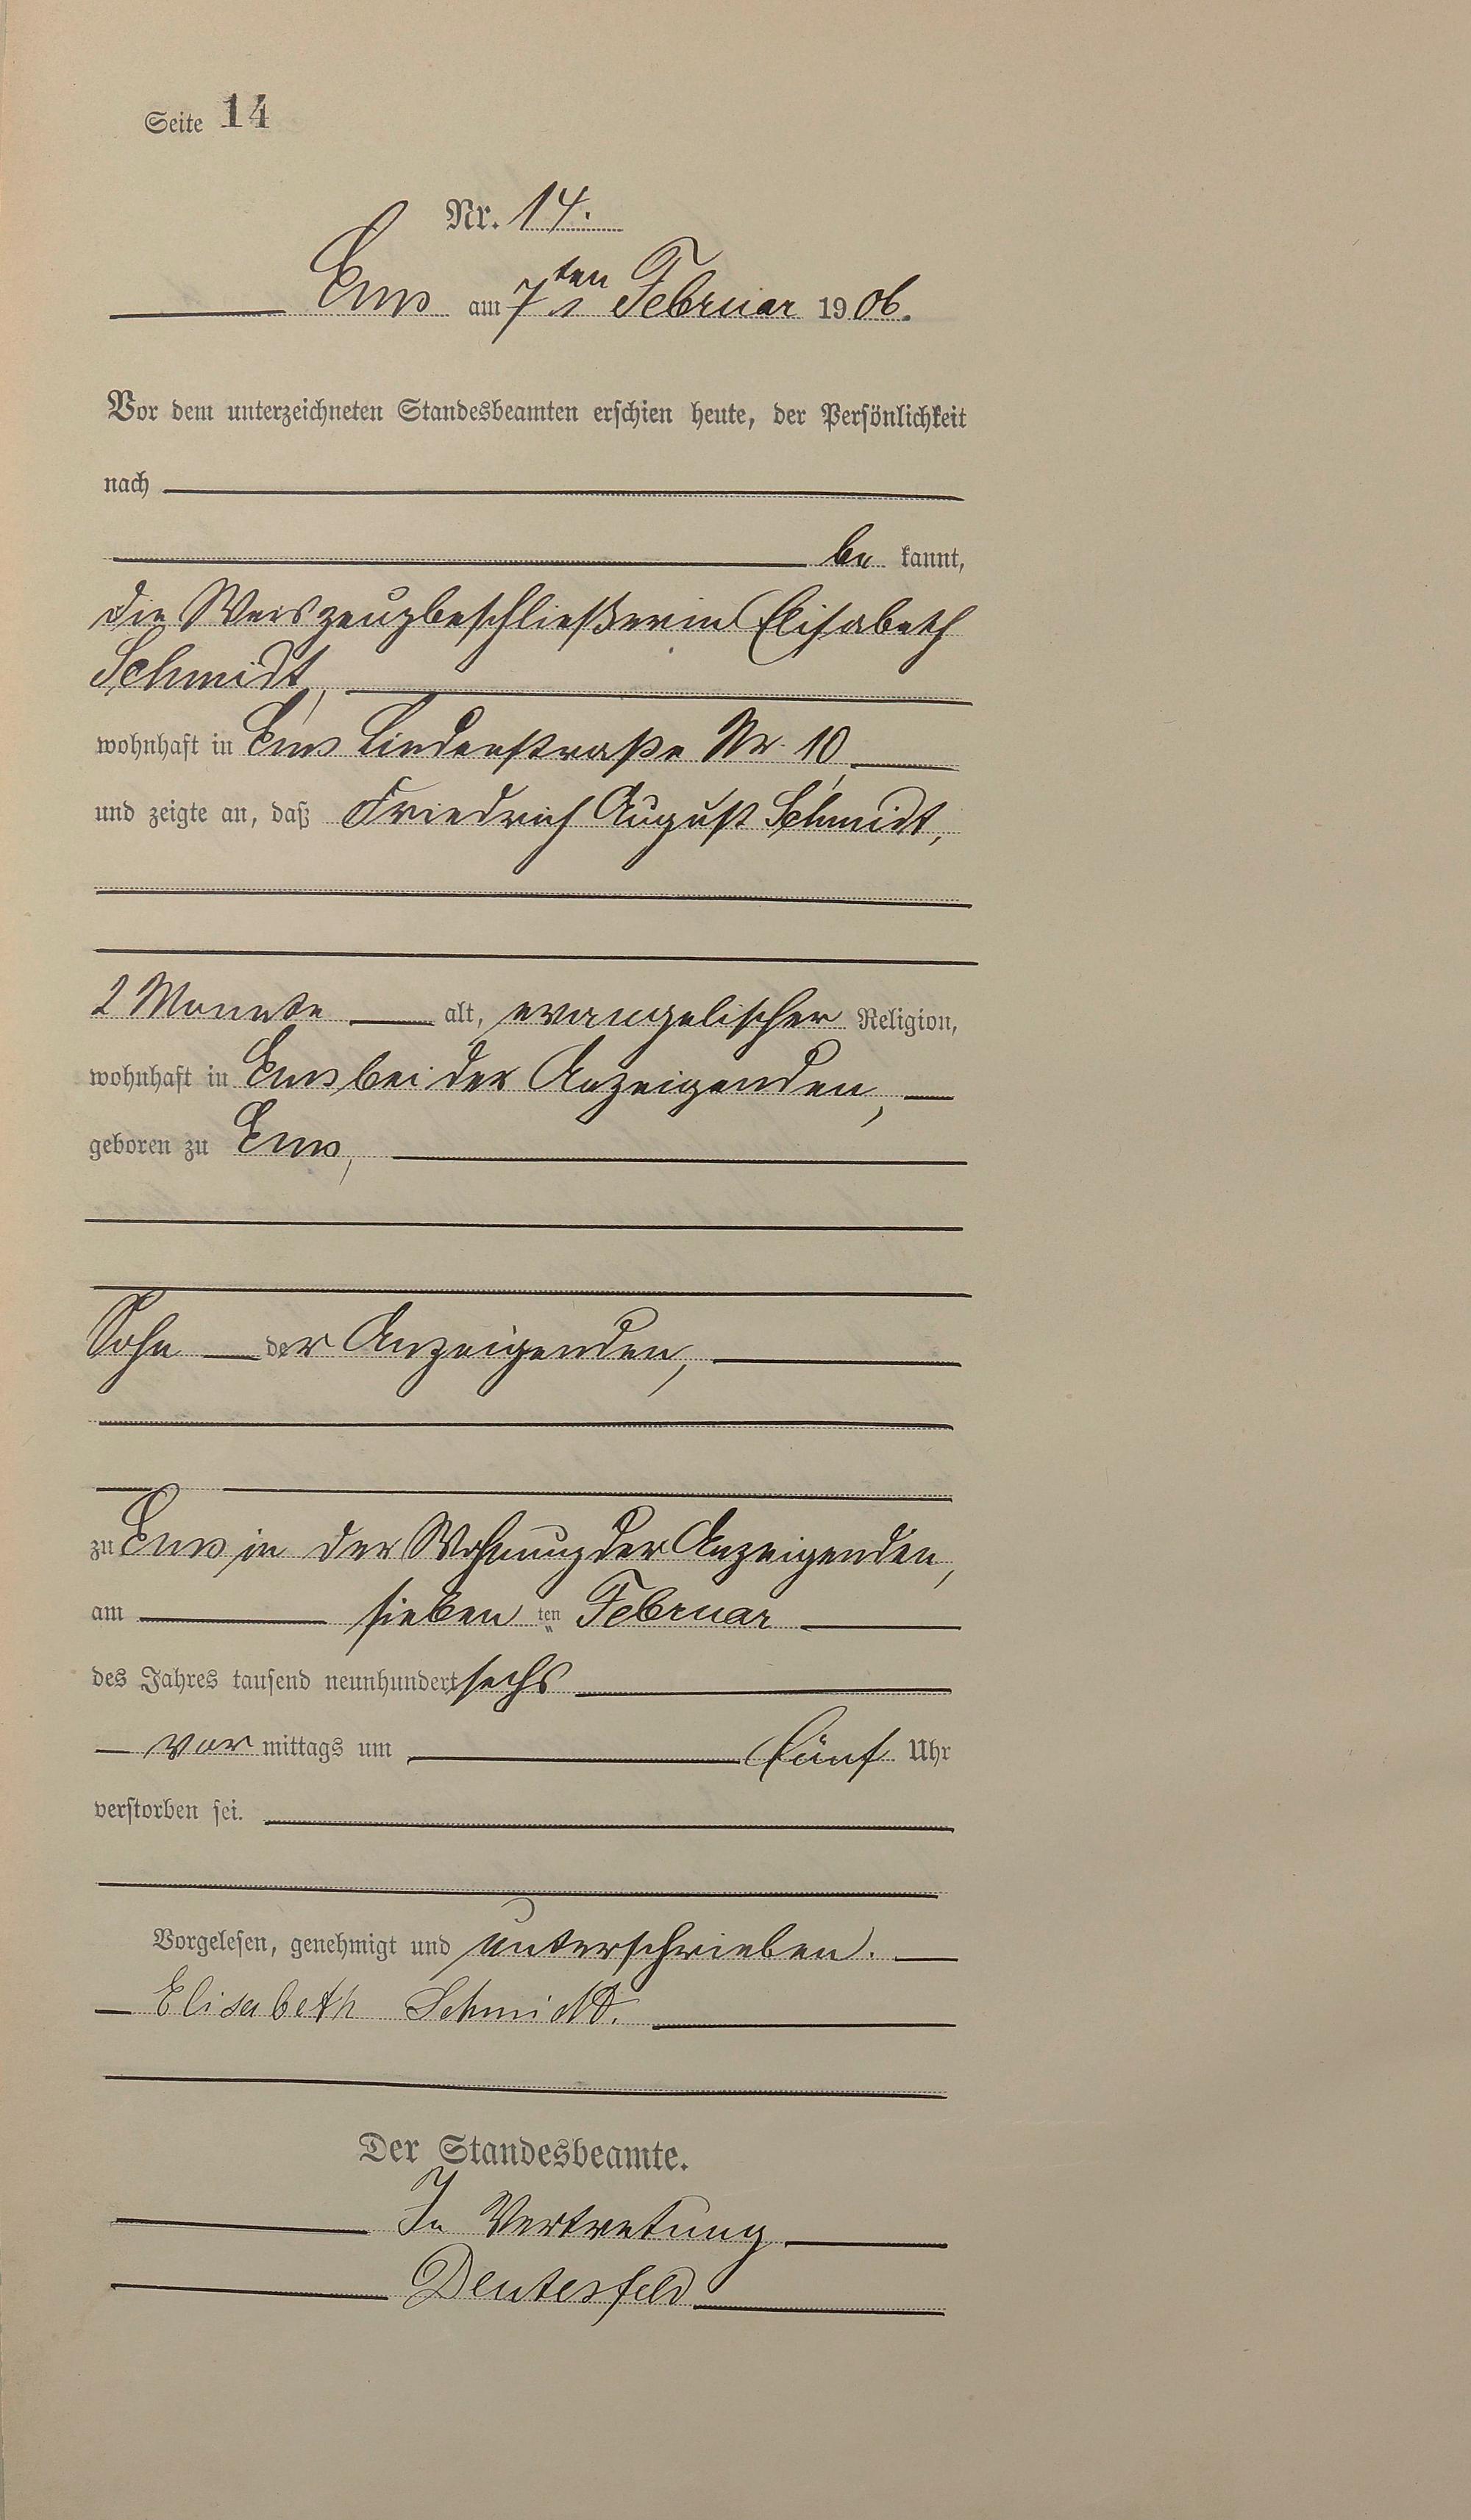 Seite 14
Nr. 14.
Ems am 7ten Februar 1906.
Vor dem unterzeichneten Standesbeamten erschien heute, der Persönlichkeit
nach
be kannt,
die Weiszeugbeschließerin Elisabeth
Schmidt,
wohnhaft in Ems Lindenstraße Nr. 10,
und zeigte an, daß Friedrich August Schmidt,
2 Monate alt, evangelischer Religion,
wohnhaft in Ems bei der Anzeigenden,
geboren zu Ems,
Sohn der Anzeigenden,
zu Ems in der Wohnung der Anzeigenden,
am sieben ten Februar
des Jahres tausend neunhundert sechs
vor mittags um fünf Uhr
verstorben sei.
Vorgelesen, genehmigt und unterschrieben.
Elisabeth Schmidt.
Der Standesbeamte.
In Vertretung
Deutesfeld